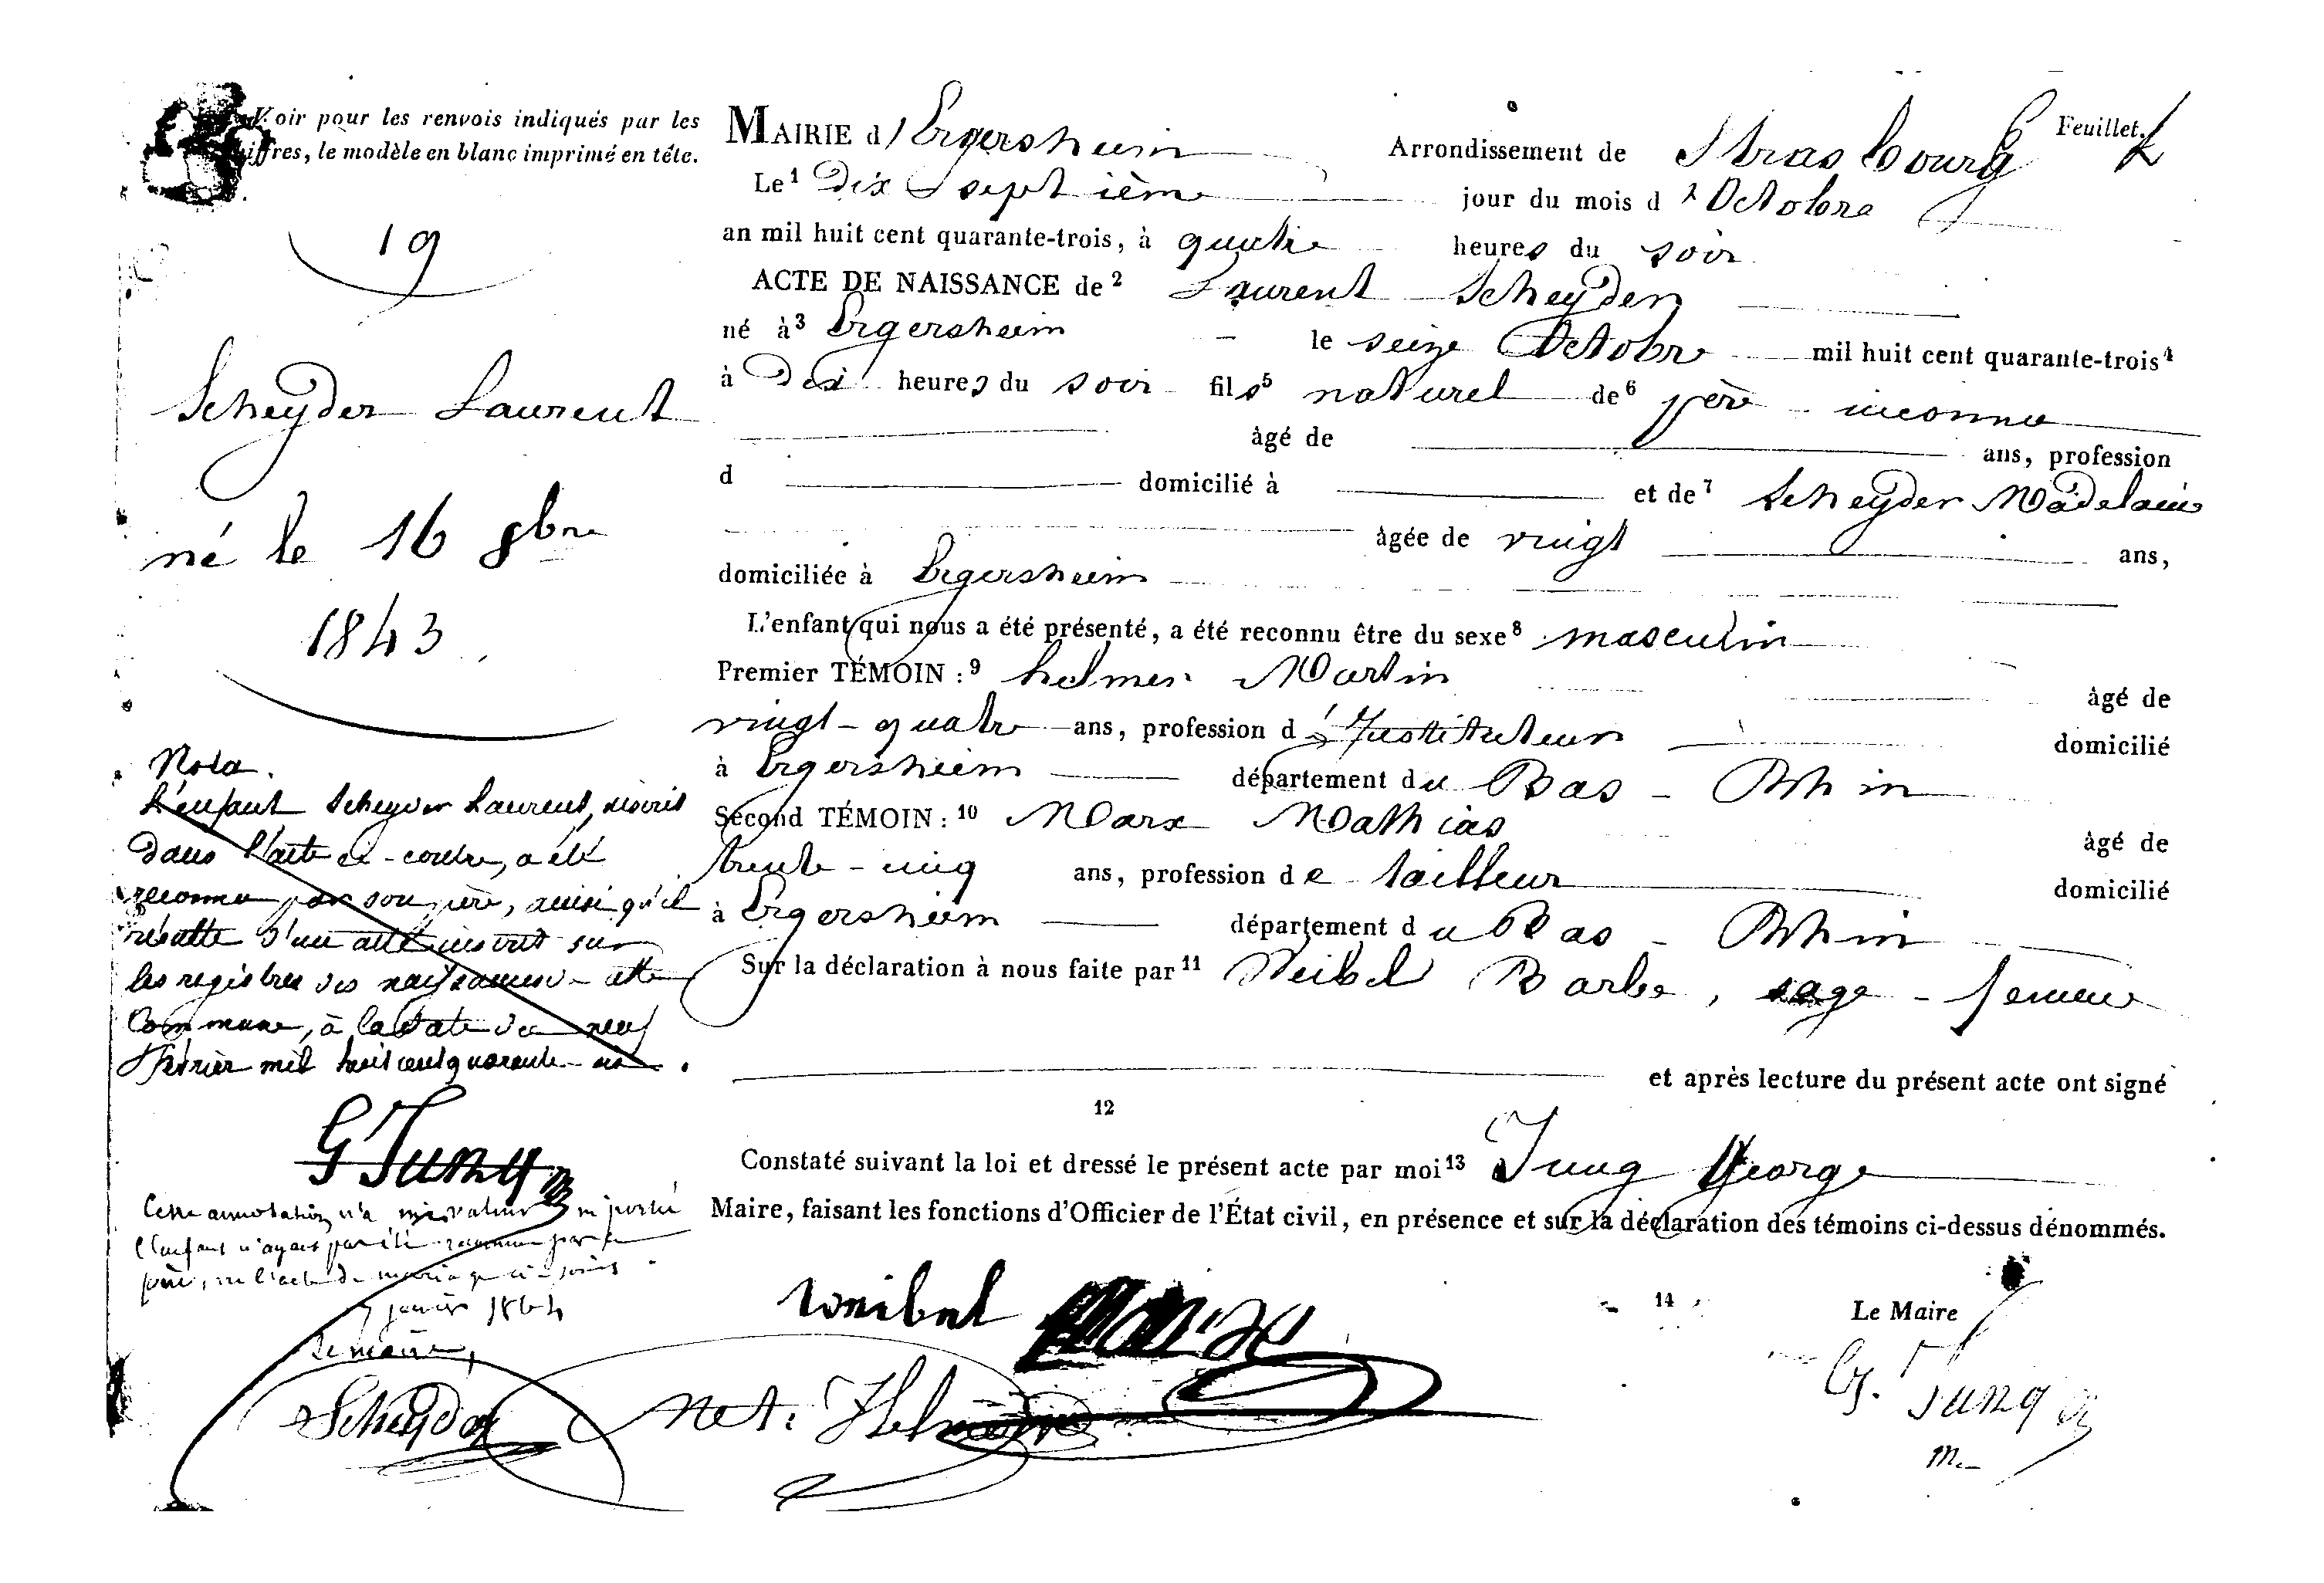 Voir pour les renvois indiqués par les
chiffres, le modèle en blanc imprimé en tête.
19
Scheyder Laurent
né le 16 8bre
1843
Nota.
L'enfant Scheyder Laurent, inscrit
dans l'acte ci-contre, a été
reconnu par son père, ainsi qu'il
résulte d'un acte inscrit sur
les registres des naissances de cette
Commune, à la date du neuf
février mil huit cent quarante-six.
G Jung
Cette annotation n'a ni valeur ni portée
l'enfant n'ayant pas été reconnu par
père, vu l'acte de mariage ci-joint.
7 janvier 1864
Le maire,
Scheyder
MAIRIE d'Ergersheim Arrondissement de Strasbourg Feuillet.
Le 1 Dix septième jour du mois d 2 Octobre
an mil huit cent quarante-trois, à quatre heures du soir
ACTE DE NAISSANCE de 2 Laurent Scheyder
né à 3 Ergersheim le seize Octobre mil huit cent quarante-trois 4
à dix heures du soir fils 5 naturel de 6 père inconnu
âgé de ans, profession
d domicilié à et de 7 Scheyder Madelaine
âgée de vingt ans,
domiciliée à Ergersheim
L'enfant qui nous a été présenté, a été reconnu être du sexe 8 masculin
Premier TÉMOIN : 9 helmer Martin âgé de
vingt-quatre ans, profession d'Instituteur domicilié
à Ergersheim département du Bas-Rhin
Second TÉMOIN : 10 Marx Mathias âgé de
trente-cinq ans, profession de tailleur domicilié
à Ergersheim département du Bas-Rhin
Sur la déclaration à nous faite par 11 Weibel Barbe, sage-femme
et après lecture du présent acte ont signé
12
Constaté suivant la loi et dressé le présent acte par moi 13 Jung George
Maire, faisant les fonctions d'Officier de l'État civil, en présence et sur la déclaration des témoins ci-dessus dénommés.
Weibel Marx 14 Le Maire
Mt. Helmer G. Jung
m.